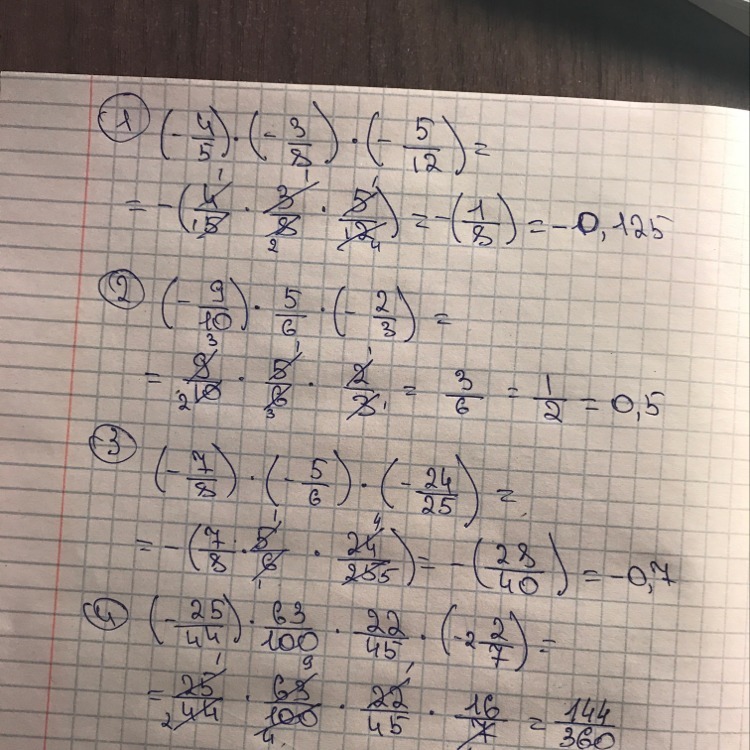 ① (-4/5)·(-3/8)·(-5/12)=
= -(4/15 · 3/8 2 · 5/12 4) = -(1/8) = -0,125
② (-9/10)· 5/6 ·(-2/3) =
= 9 3/2 10 · 5 1/6 3 · 2 1/3 1 = 3/6 = 1/2 = 0,5
③ (-7/8)·(-5/6)·(-24/25) =
= -(7/8 · 5 1/6 1 · 24 4/25 5) = -(28/40) = -0,7
④ (-25/44)· 63/100 · 22/45 ·(-2 2/7) =
= 25 1/2 44 · 63 9/100 4 · 22 1/45 · 16/7 1 = 144/360